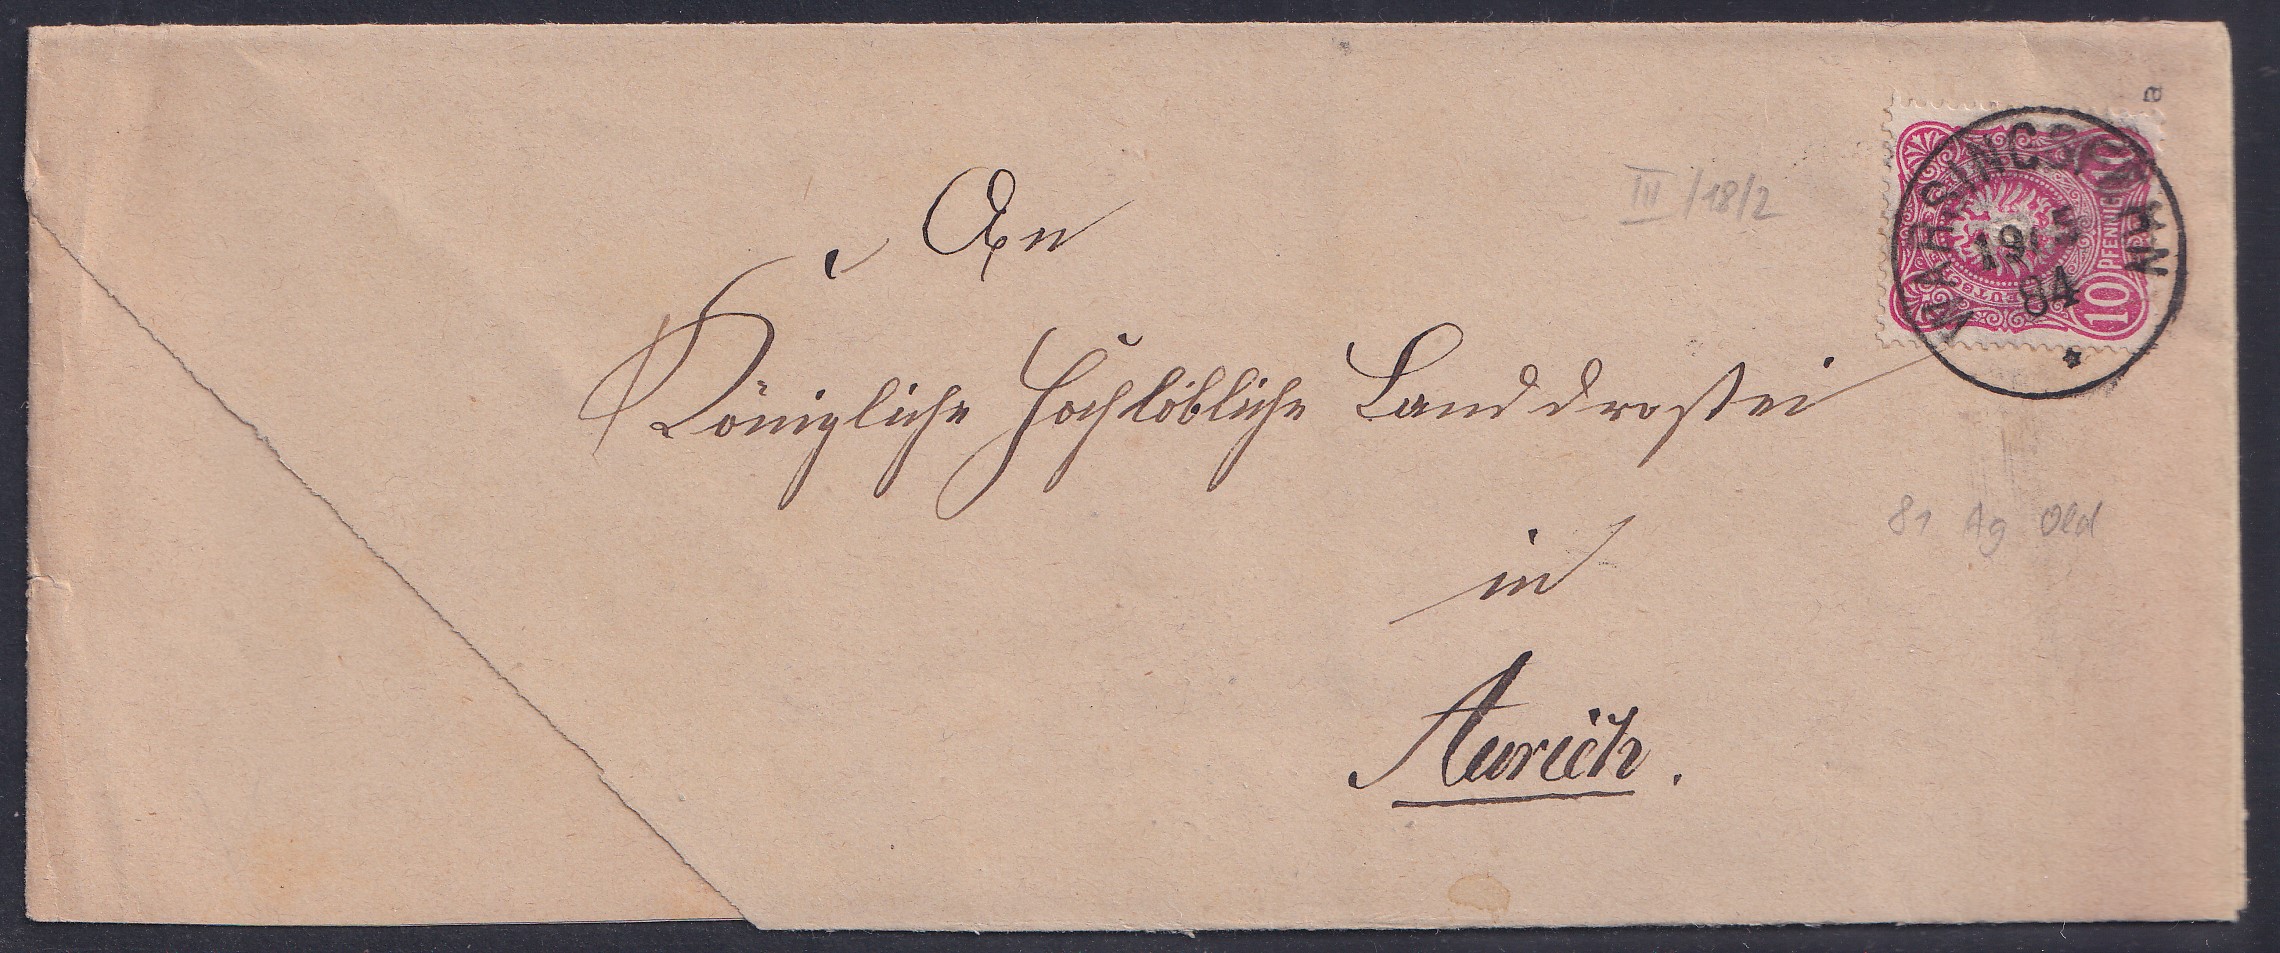 a
An
III /18/2
WAHRINGSFEHN
19 5
84
*
10 PFENNIG 10
Königliche Hochlöbliche Landdrostei
81 Ag Old
in
Aurich.